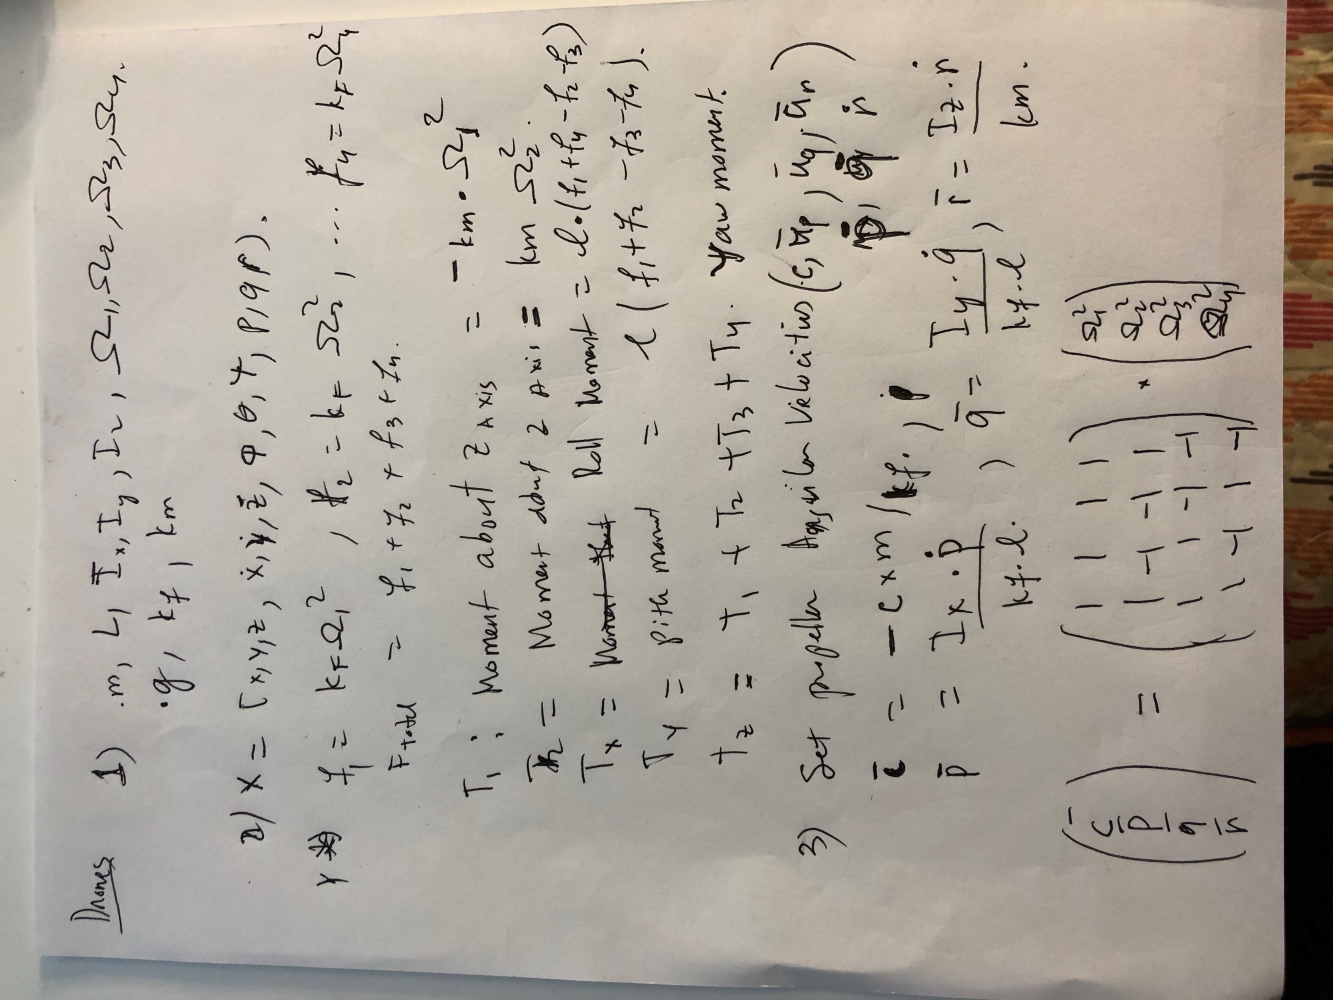 Drones 1) .m, L, Ix, Iy, Iz, Ω1, Ω2, Ω3, Ω4.
.g, kf, km
2) X = [x, y, z, ẋ, ẏ, ż, φ, θ, ψ, p, q r).
f1 = kF Ω1², f2 = kF Ω2², ... f4 = kF Ω4²
F total = f1 + f2 + f3 + f4.
T1 : Moment about Z Axis = - km · Ω1²
T2 = Moment about Z Axis = km Ω2².
Tx = Roll Moment = l·(f1 + f4 - f2 - f3)
Ty = pith moment = l (f1 + f2 - f3 - f4).
tz = T1 + T2 + T3 + T4. Yaw moment.
3) Set propeller Angular Velocities (c, ūp, ūq, ūr)
p̄, q̄ ṙ
c̄ = - c × m / kf. , ṗ
p̄ = Ix · ṗ / kf. l. , q̄ = Iy · q̇ / kf. l , r̄ = Iz · ṙ / km.
(c̄ = (1 1 1 1 · (Ω1²
p̄ 1 -1 -1 1 Ω2²
q̄ 1 1 -1 -1 Ω3²
r̄) 1 -1 1 -1) Ω4²)